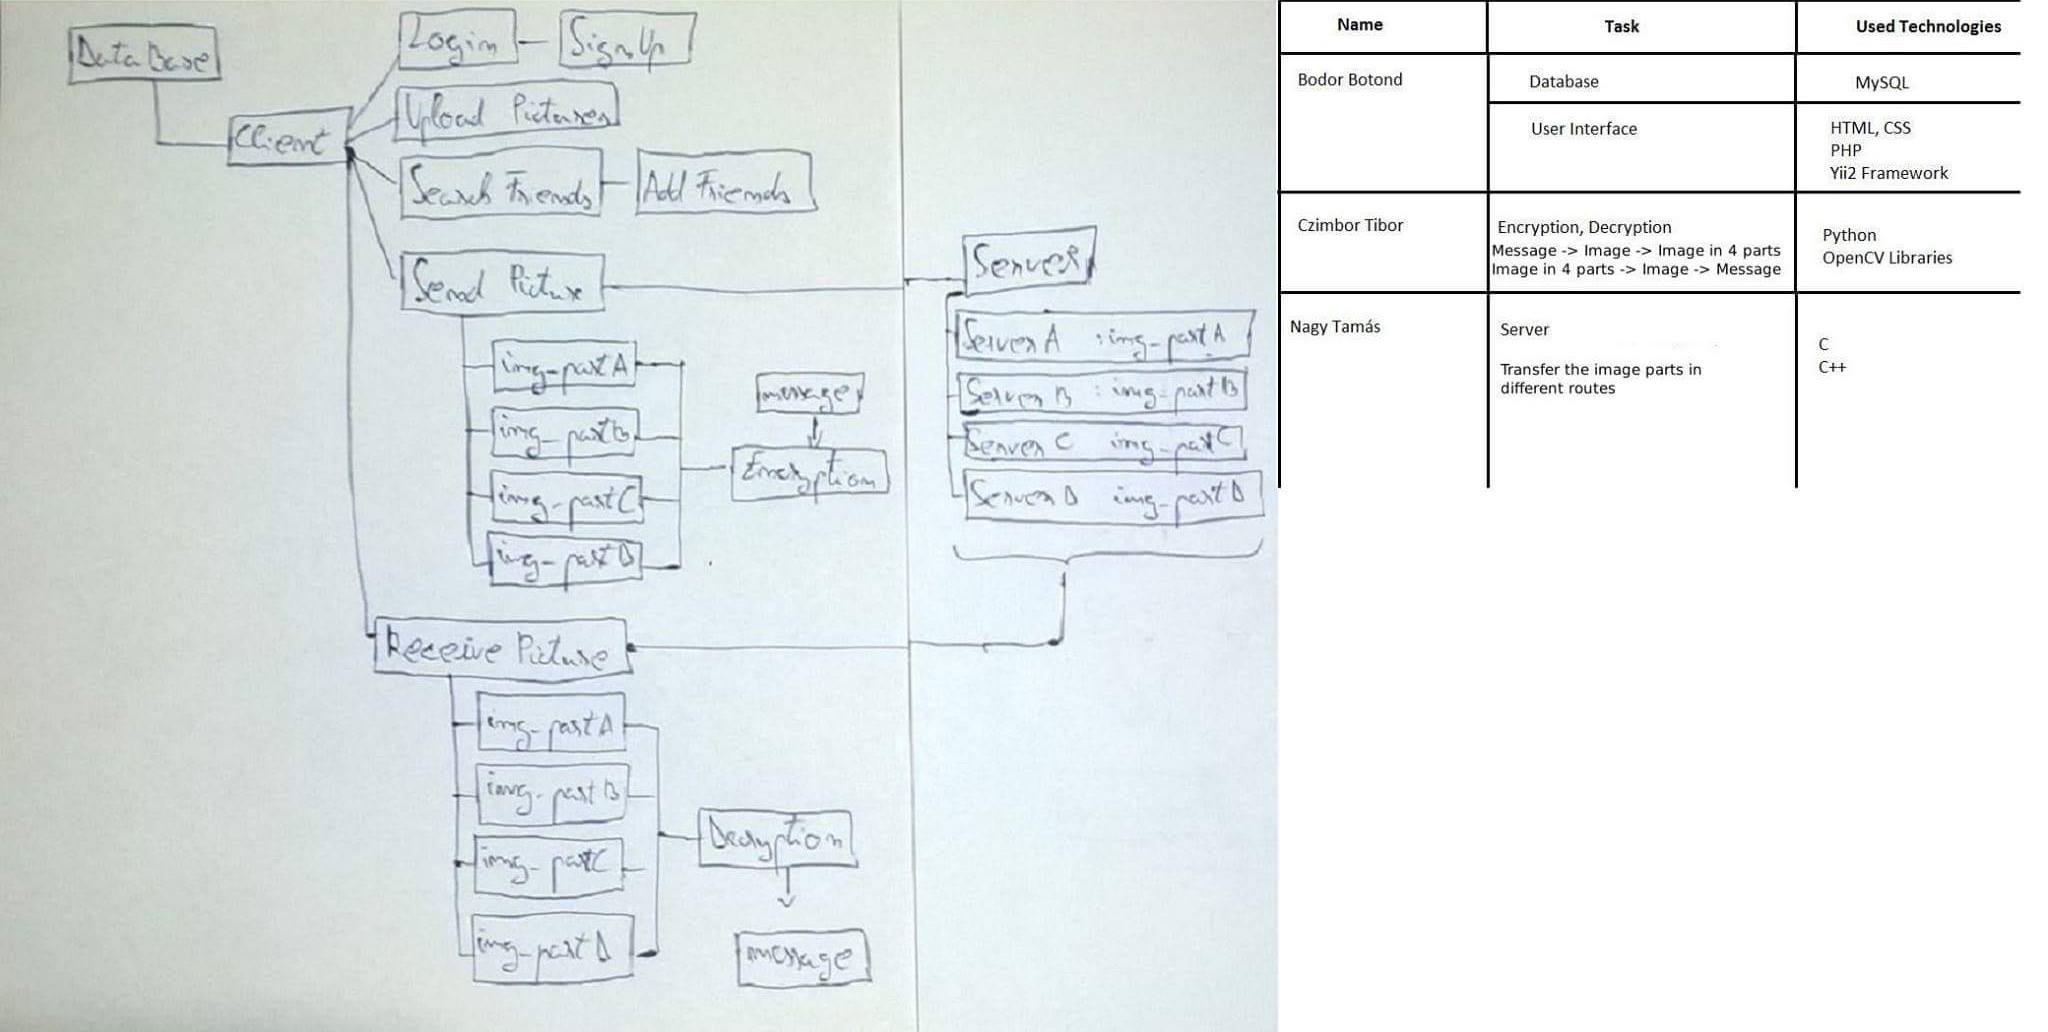 DataBase
Login
SignUp
Client
Upload Pictures
Search Friends
Add Friends
Send Picture
img-partA
img-partB
img-partC
img-partD
message
Encryption
Server
Server A : img-partA
Server B : img-partB
Server C img-partC
Server D img-partD
Receive Picture
img-partA
img-partB
img-partC
img-partD
Decryption
message
Name Task Used Technologies
Bodor Botond Database MySQL
User Interface HTML, CSS
PHP
Yii2 Framework
Czimbor Tibor Encryption, Decryption Python
Message -> Image -> Image in 4 parts OpenCV Libraries
Image in 4 parts -> Image -> Message
Nagy Tamás Server C
Transfer the image parts in C++
different routes